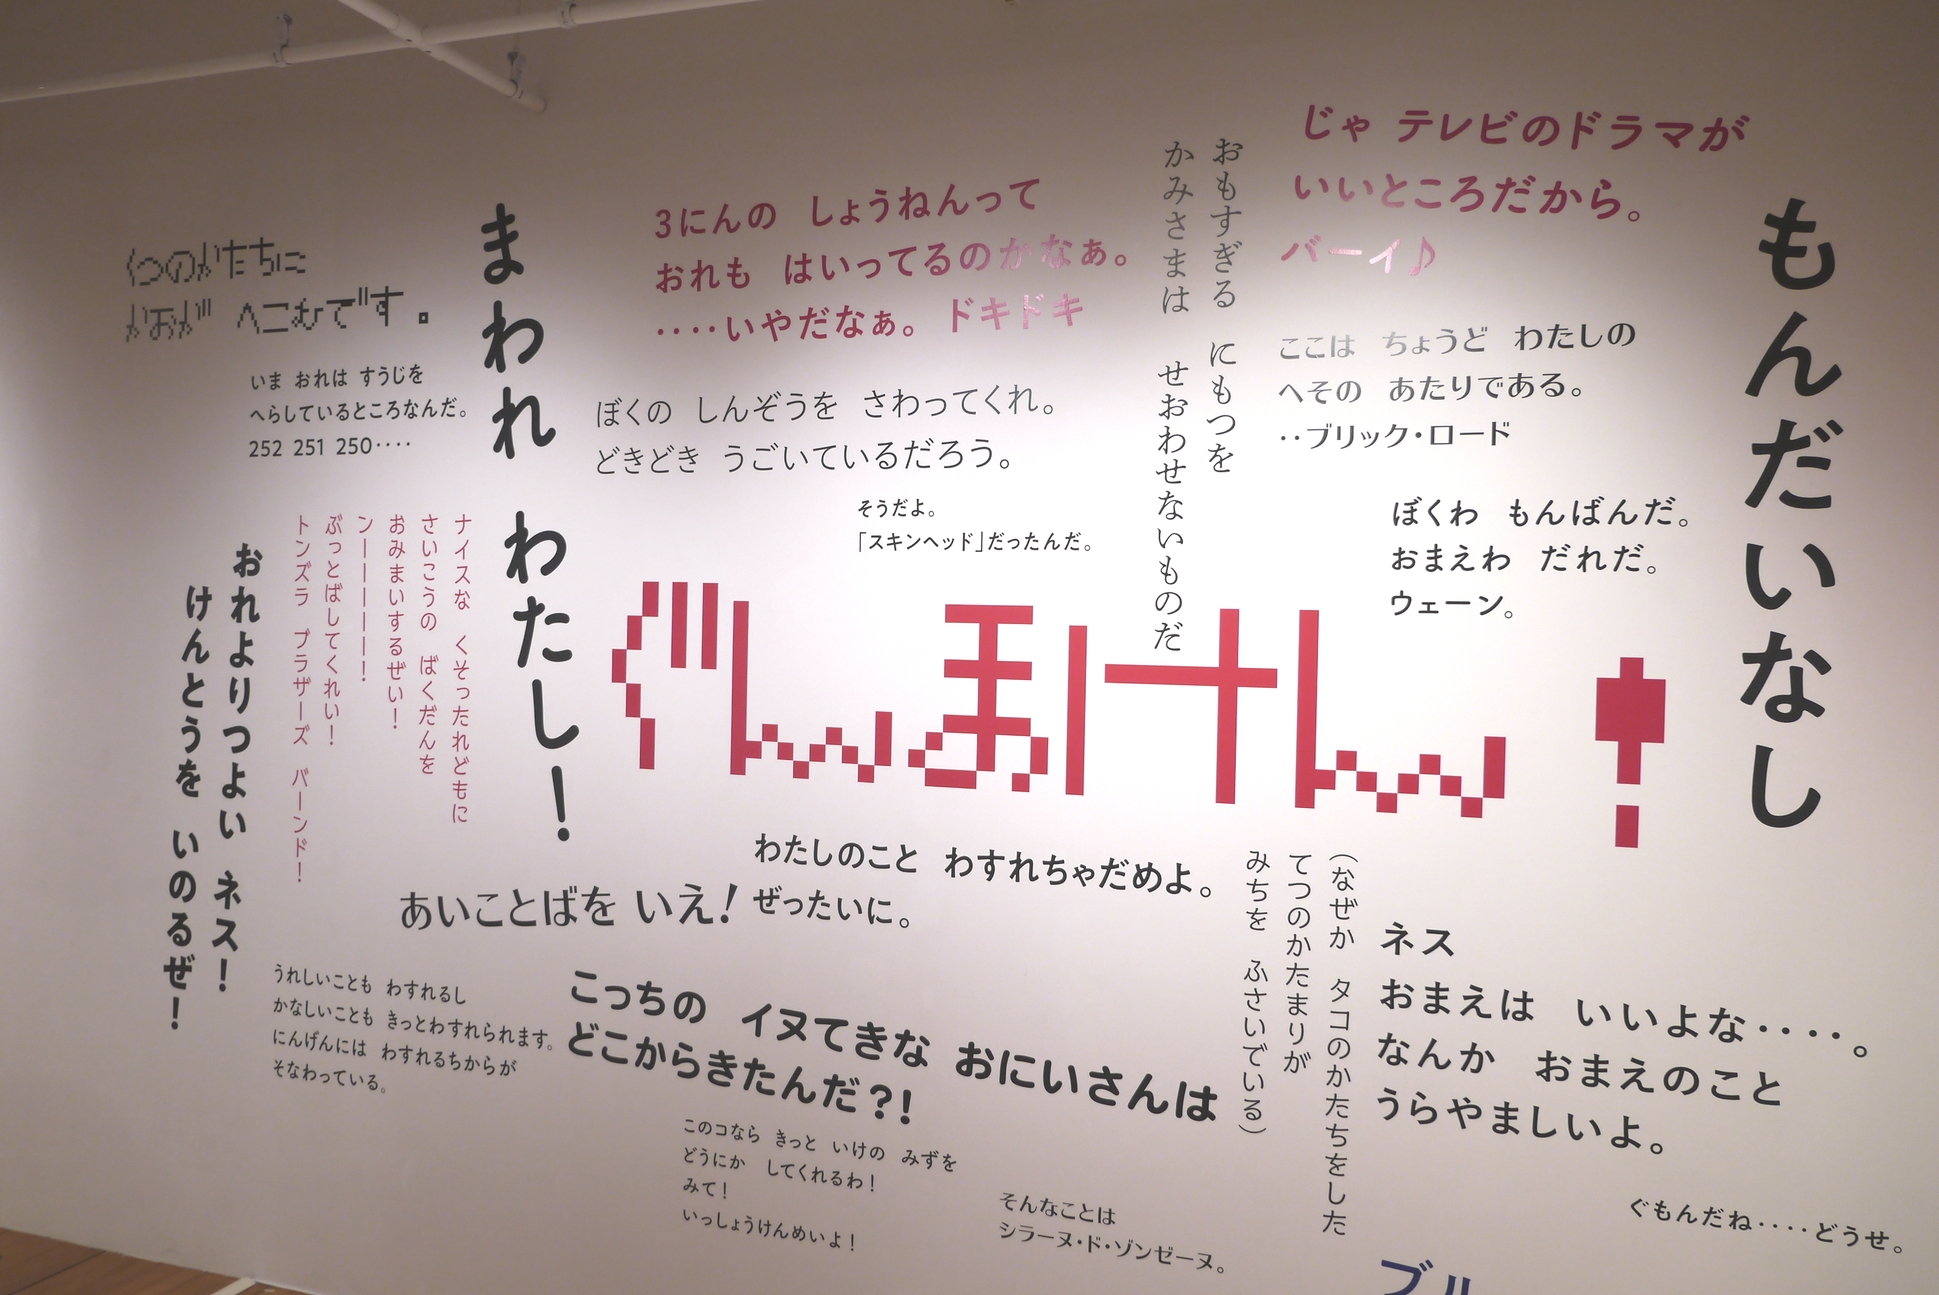 くつのかたちに
かおが へこむです。
いま おれは すうじを
へらしているところなんだ。
252 251 250‥‥
まわれ わたし！
3にんの しょうねんって
おれも はいってるのかなぁ。
‥‥いやだなぁ。ドキドキ
ぼくの しんぞうを さわってくれ。
どきどき うごいているだろう。
そうだよ。
「スキンヘッド」だったんだ。
おもすぎる にもつを
かみさまは せおわせないものだ
じゃ テレビのドラマが
いいところだから。
バーイ♪
ここは ちょうど わたしの
へその あたりである。
‥ブリック・ロード
ぼくわ もんばんだ。
おまえわ だれだ。
ウェーン。
もんだいなし
ナイスな くそったれどもに
さいこうの ばくだんを
おみまいするぜい！
ンーーーーーー！
ぶっとばしてくれい！
トンズラ ブラザーズ バーンド！
おれよりつよい ネス！
けんとうを いのるぜ！
ぐんまけん！
わたしのこと わすれちゃだめよ。
ぜったいに。
あいことばを いえ！
うれしいことも わすれるし
かなしいことも きっとわすれられます。
にんげんには わすれるちからが
そなわっている。
こっちの イヌてきな おにいさんは
どこからきたんだ？！
このコなら きっと いけの みずを
どうにか してくれるわ！
みて！
いっしょうけんめいよ！
そんなことは
シラーヌ・ド・ゾンゼーヌ。
（なぜか タコのかたちをした
てつのかたまりが
みちを ふさいでいる）
ネス
おまえは いいよな‥‥。
なんか おまえのこと
うらやましいよ。
ぐもんだね‥‥どうせ。
ブル